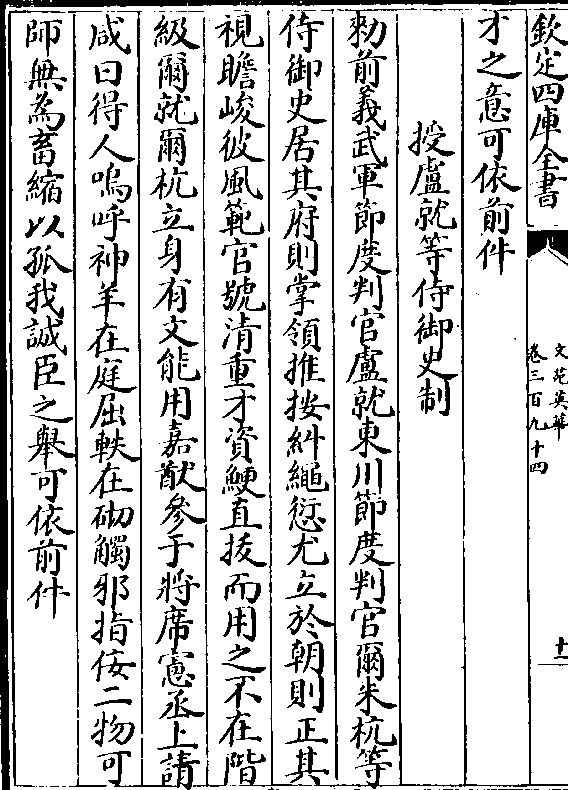 欽定四庫全書
文苑英華
卷三百九十四
十一
才之意可依前件
授盧就等侍御史制
勑前義武軍節度判官盧就東川節度判官爾朱杭等
侍御史居其府則掌領推按糾繩愆尤立於朝則正其
視瞻峻彼風範官號清重才資鯁直拔而用之不在階
級爾就爾杭立身有文能用嘉猷參于將席憲丞上請
咸曰得人嗚呼神羊在庭屈軼在砌觸邪指佞二物可
師無為畜縮以孤我誠臣之舉可依前件